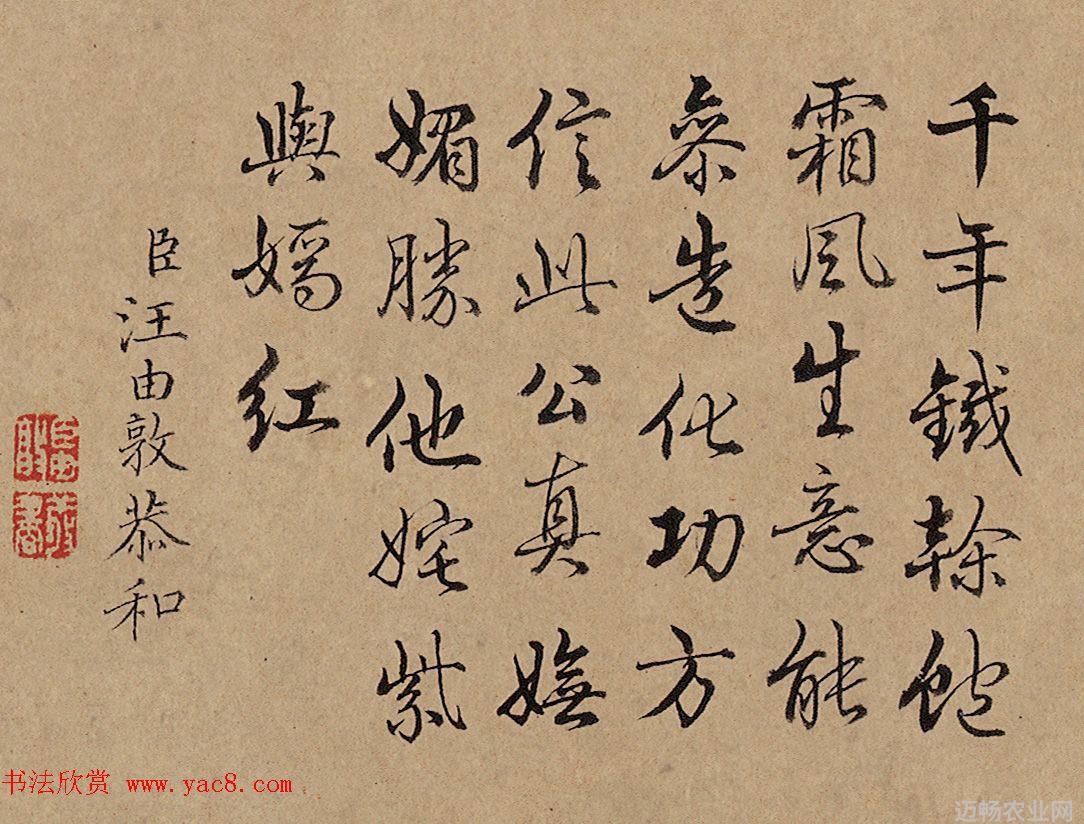 千年鐵榦飽
霜風生意能
叅造化功方
信此公真嫵
媚勝他姹紫
與嫣紅
臣汪由敦恭和
书法欣赏 www.yac8.com
迈畅农业网